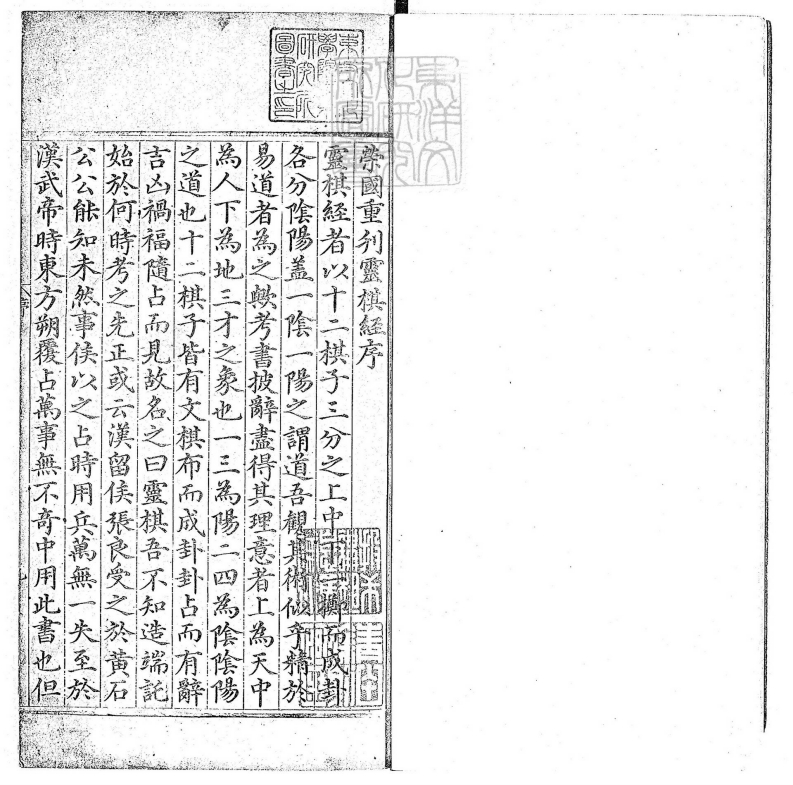 榮國重刋靈棋經序
靈棋經者以十二棋子三分之上中下一擲而成卦
各分陰陽盖一陰一陽之謂道吾觀其術似乎精於
易道者為之歟考書披辭盡得其理意者上為天中
為人下為地三才之象也一三為陽二四為陰陰陽
之道也十二棋子皆有文棋布而成卦卦占而有辭
吉凶禍福隨占而見故名之曰靈棋吾不知造端託
始於何時考之先正或云漢留侯張良受之於黃石
公公能知未然事侯以之占時用兵萬無一失至於
漢武帝時東方朔覆占萬事無不奇中用此書也但